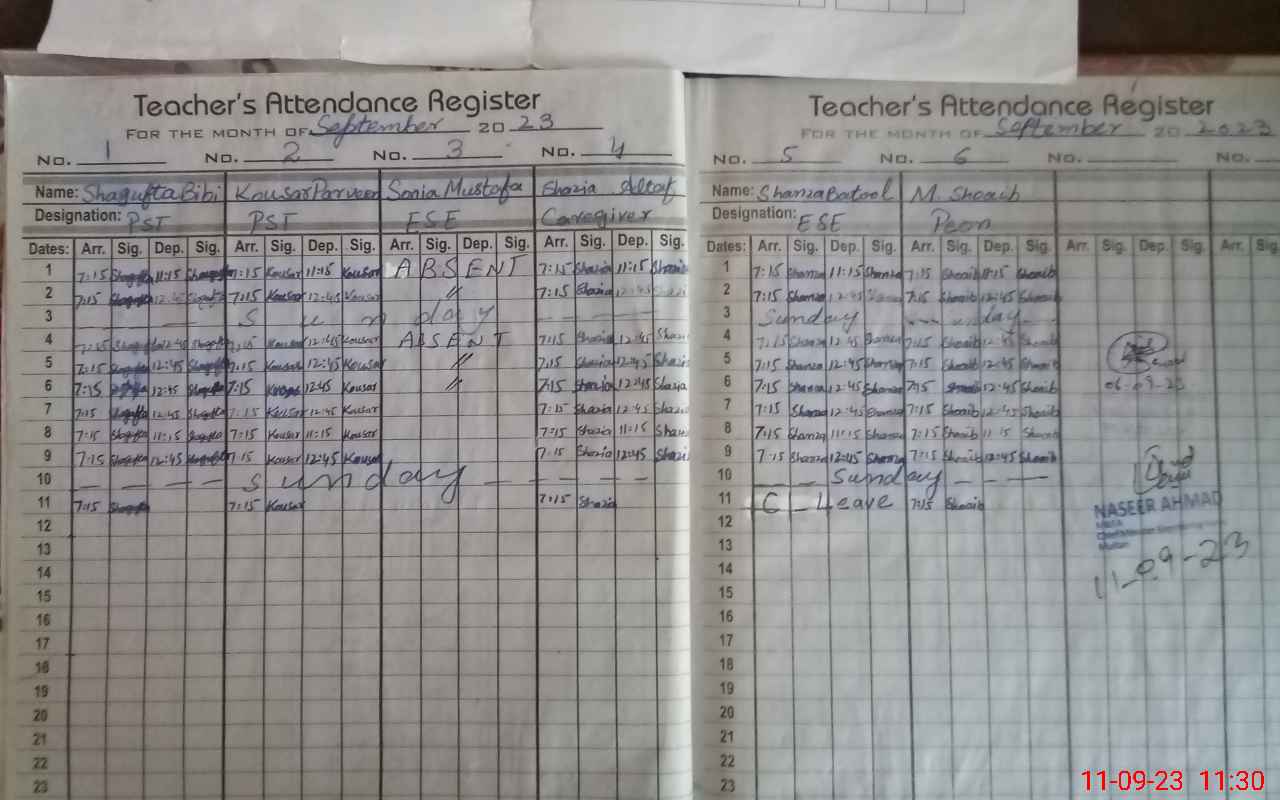 Teacher's Attendance Register
FOR THE MONTH OF September 2023
No. 1 No. 2 No. 3 No. 4
Name: Shagufta Bibi Kousar Parveen Sonia Mustafa Shazia Altaf
Designation: PST PST ESE Caregiver
Dates: Arr. Sig. Dep. Sig. Arr. Sig. Dep. Sig. Arr. Sig. Dep. Sig. Arr. Sig. Dep. Sig.
1 7:15 Shagufta 11:15 Shagufta 7:15 Kousar 11:15 Kousar ABSENT 7:15 Shazia 11:15 Shazia
2 7:15 Shagufta 12:45 Shagufta 7:15 Kousar 12:45 Kousar // 7:15 Shazia 12:45 Shazia
3 Sunday
4 7:15 Shagufta 12:45 Shagufta 7:15 Kousar 12:45 Kousar ABSENT 7:15 Shazia 12:45 Shazia
5 7:15 Shagufta 12:45 Shagufta 7:15 Kousar 12:45 Kousar // 7:15 Shazia 12:45 Shazia
6 7:15 12:45 Shagufta 7:15 Kousar 12:45 Kousar // 7:15 Shazia 12:45 Shazia
7 7:15 Shagufta 12:45 Shagufta 7:15 Kousar 12:45 Kousar 7:15 Shazia 12:45 Shazia
8 7:15 Shagufta 11:15 Shagufta 7:15 Kousar 11:15 Kousar 7:15 Shazia 11:15 Shazia
9 7:15 Shagufta 12:45 Shagufta 7:15 Kousar 12:45 Kousar 7:15 Shazia 12:45 Shazia
10 Sunday
11 7:15 Shagufta 7:15 Kousar 7:15 Shazia
12
13
14
15
16
17
18
19
20
21
22
23
Teacher's Attendance Register
FOR THE MONTH OF September 20 2023
No. 5 No. 6 No. No.
Name: Shanza Batool M. Shoaib
Designation: ESE Peon
Dates: Arr. Sig. Dep. Sig. Arr. Sig. Dep. Sig. Arr. Sig. Dep. Sig. Arr. Sig.
1 7:15 Shanza 11:15 Shanza 7:15 Shoaib 11:15 Shoaib
2 7:15 Shanza 12:45 Shanza 7:15 Shoaib 12:45 Shoaib
3 Sunday Sunday
4 7:15 Shanza 12:45 Shanza 7:15 Shoaib 12:45 Shoaib
5 7:15 Shanza 12:45 Shanza 7:15 Shoaib 12:45 Shoaib
6 7:15 Shanza 12:45 Shanza 7:15 Shoaib 12:45 Shoaib 06-09-23
7 7:15 Shanza 12:45 Shanza 7:15 Shoaib 12:45 Shoaib
8 7:15 Shanza 11:15 Shanza 7:15 Shoaib 11:15 Shoaib
9 7:15 Shanza 12:45 Shanza 7:15 Shoaib 12:45 Shoaib
10 Sunday
11 C_Leave 7:15 Shoaib
NASEER AHMAD
12
13
11-09-23
14
15
16
17
18
19
20
21
22
23
11-09-23 11:30